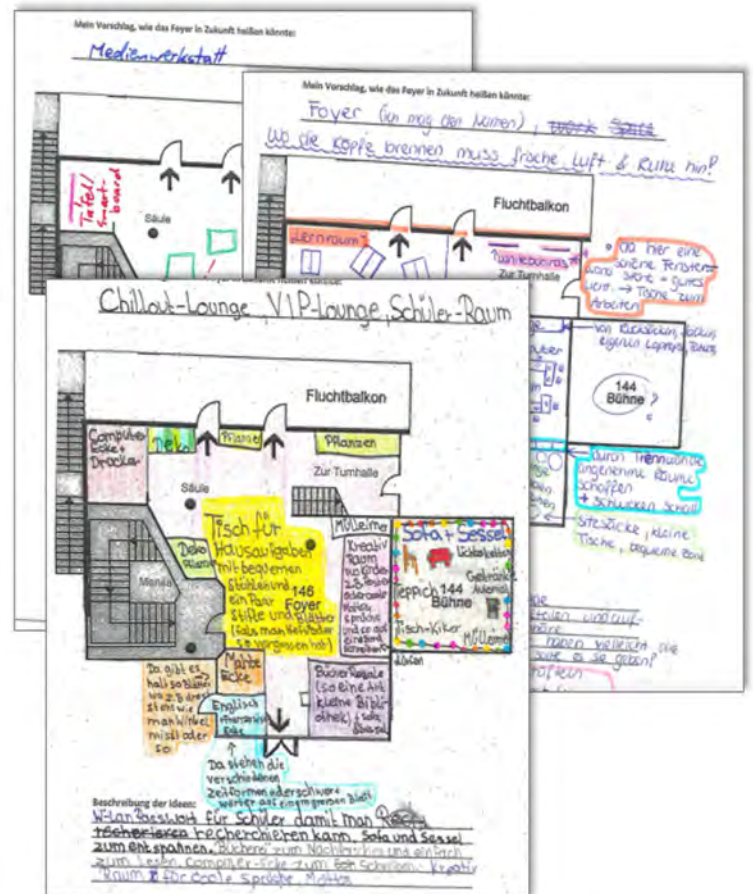 Mein Vorschlag, wie das Foyer in Zukunft heißen könnte:
Medienwerkstatt
Tafel/
Smart-
board
Säule
Mein Vorschlag, wie das Foyer in Zukunft heißen könnte:
Foyer (ich mag den Namen),
Wo die Köpfe brennen muss frische Luft & Ruhe hin!
Fluchtbalkon
Lernraum
Whiteboards
Zur Turnhalle
Da hier eine
schöne Fenster-
wand steht = gutes
→ Tische zum
Arbeiten
von Rucksäcken, Jacken,
eigenen Laptops,
144
Bühne ?
durch Trennwände
angenehme Räume
schaffen
+ schlucken Schall
Sitzsäcke, kleine
Tische, bequeme
haben vielleicht die
es sie geben?
Chillout-Lounge, VIP-Lounge, Schüler-Raum
Fluchtbalkon
Computer
Ecke +
Drucker
Deko
Pflanze
Pflanzen
Zur Turnhalle
Säule
Mülleimer
Tisch für
Hausaufgaben
mit bequemen
Stühlen und
ein Paar
Stifte und Blätter
(falls man Hefte oder
so vergessen hat)
146
Foyer
Deko
Pflanze
Kreativ
Raum
wo Kinder
z.B Poster
oder coole
Mottos,
sprüche
und so auf
eine Wand
schreiben
Sofa + Sessel
Lichterketten
Getränke
Automat
Teppich
144
Bühne
Tisch-Kiker
Mülleimer
Mensa
Mathe
Ecke
Da gibt es
halt so Blätter
wo z.B drauf
steht wie
man Winkel
misst oder
so
Englisch
Ecke
Bücher Regale
(so eine Art
kleine Bibli
othek) + Sofa,
Sessel
Da stehen die
verschiedenen
zeitformen oder schwere
wörter auf einem großen Blatt
Beschreibung der Ideen:
W-Lan Passwort für Schüler damit man
recherchieren kann. Sofa und Sessel
zum entspannen. Bücherei zum Nachforschen und einfach
zum Lesen. Computer-Ecke zum Schreiben. Kreativ
Raum für coole Sprüche, Mottos